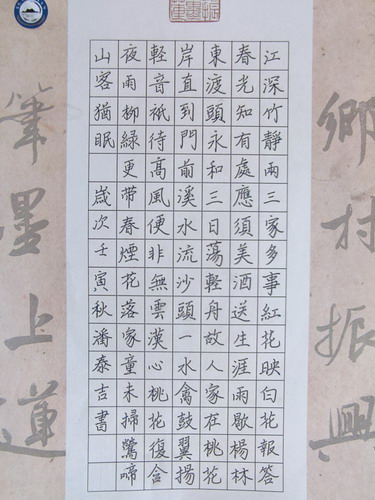 鄉村振興
江深竹靜兩三家多事紅花映白花報答
春光知有處應須美酒送生涯雨歇楊林
東渡頭永和三日蕩輕舟故人家在桃花
岸直到門前溪水流沙頭一水禽鼓翼揚
輕音祇待高風便非無雲漢心桃花復含
夜雨柳綠更帶春煙花落家童未掃鶯啼
山客猶眠 歲次壬寅秋潘泰吉書
筆墨上